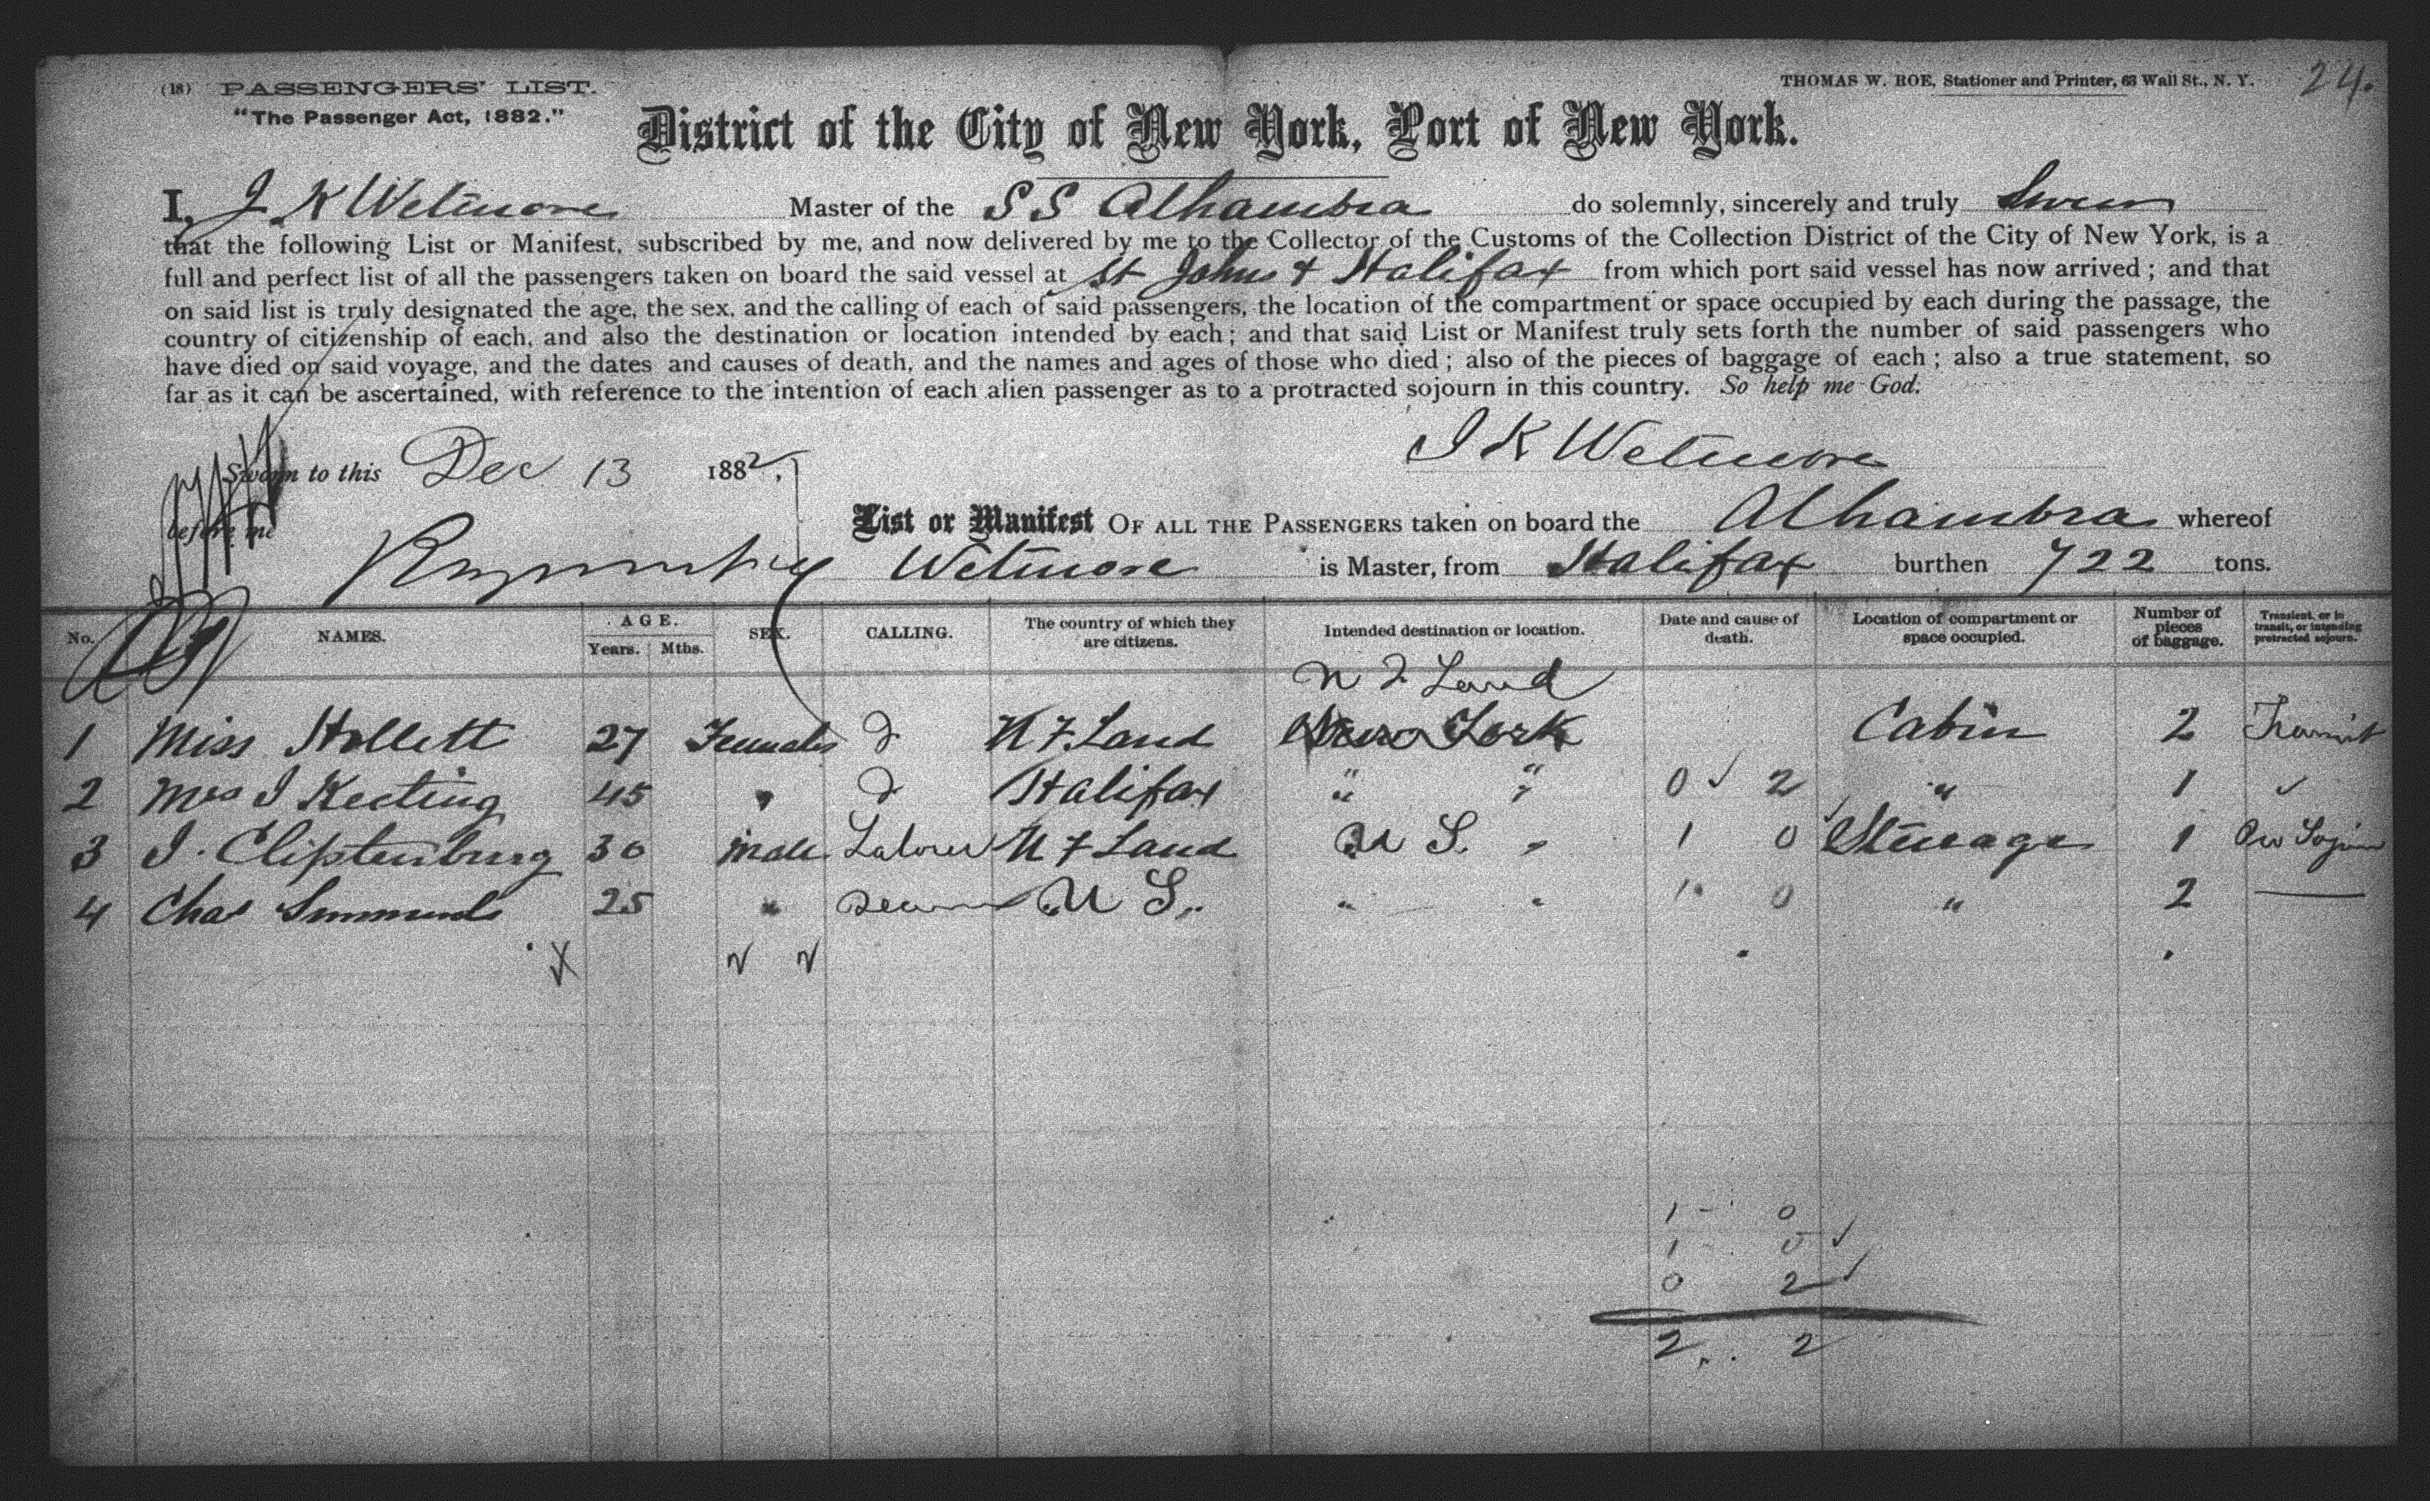 (18) PASSENGERS' LIST.
"The Passenger Act, 1882."
THOMAS W. ROE, Stationer and Printer, 63 Wall St., N. Y.
24.
District of the City of New York, Port of New York.
I, J K Wetmore Master of the S S Alhambra do solemnly, sincerely and truly Swear
that the following List or Manifest, subscribed by me, and now delivered by me to the Collector of the Customs of the Collection District of the City of New York, is a
full and perfect list of all the passengers taken on board the said vessel at St Johns & Halifax from which port said vessel has now arrived; and that
on said list is truly designated the age, the sex, and the calling of each of said passengers, the location of the compartment or space occupied by each during the passage, the
country of citizenship of each, and also the destination or location intended by each; and that said List or Manifest truly sets forth the number of said passengers who
have died on said voyage, and the dates and causes of death, and the names and ages of those who died; also of the pieces of baggage of each; also a true statement, so
far as it can be ascertained, with reference to the intention of each alien passenger as to a protracted sojourn in this country. So help me God.
J K Wetmore
Sworn to this Dec 13 1882,
before me
List or Manifest OF ALL THE PASSENGERS taken on board the Alhambra whereof
Wetmore is Master, from Halifax burthen 722 tons.
No. NAMES. AGE. Years. Mths. SEX. CALLING. The country of which they are citizens. Intended destination or location. Date and cause of death. Location of compartment or space occupied. Number of pieces of baggage. Transient, or in transit, or intending protracted sojourn.
N F Land
1 Miss Hollett 27 Female N F. Land New York Cabin 2 Transit
2 Mrs J Keeting 45 " Halifax " " 0 2 " 1
3 J. Cliftenburg 30 Male Laborer N F Land U S. 1 0 Steerage 1
4 Chas Simmonds 25 " Seaman U S. " " 1 0 " 2
1 - 0
1 - 0
0 2
2 2